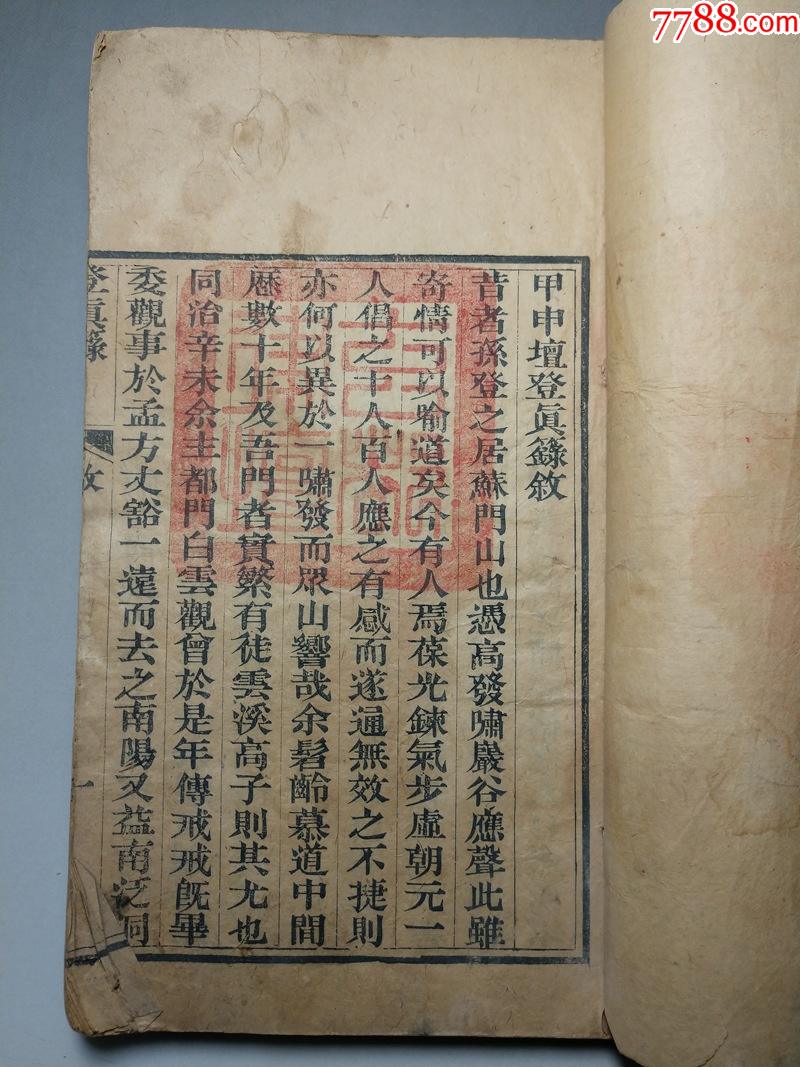 7788.com
甲申壇登眞籙敘
昔者孫登之居蘇門山也憑高發嘯巖谷應聲此雖
寄情可以喻道矣今有人焉葆光鍊氣步虛朝元一
人倡之十人百人應之有感而遂通無效之不捷則
亦何以異於一嘯發而眾山響哉余髫齡慕道中間
歷數十年及吾門者實繁有徒雲溪高子則其尤也
同治辛未余主都門白雲觀曾於是年傳戒戒旣畢
委觀事於孟方丈豁一遠而去之南陽又益南泛洞
登眞籙
敘
一